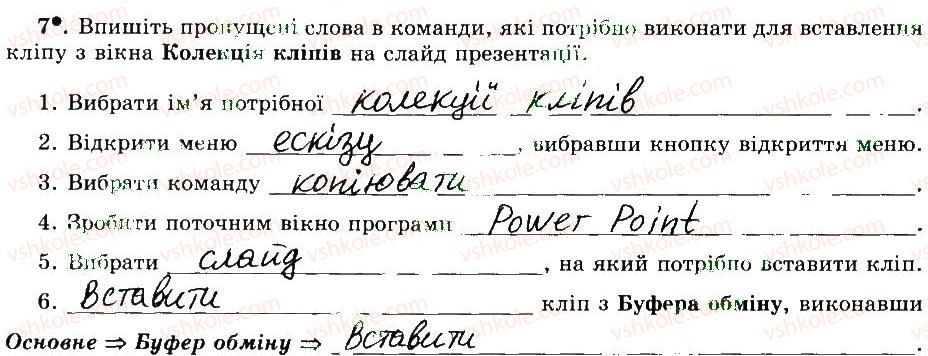 7•. Впишіть пропущені слова в команди, які потрібно виконати для вставлення
кліпу з вікна Колекція кліпів на слайд презентації.
1. Вибрати ім'я потрібної колекції кліпів.
2. Відкрити меню ескізу, вибравши кнопку відкриття меню.
3. Вибрати команду копіювати.
4. Зробити поточним вікно програми Power Point.
5. Вибрати слайд, на який потрібно вставити кліп.
6. Вставити кліп з Буфера обміну, виконавши
Основне ⇒ Буфер обміну ⇒ Вставити.